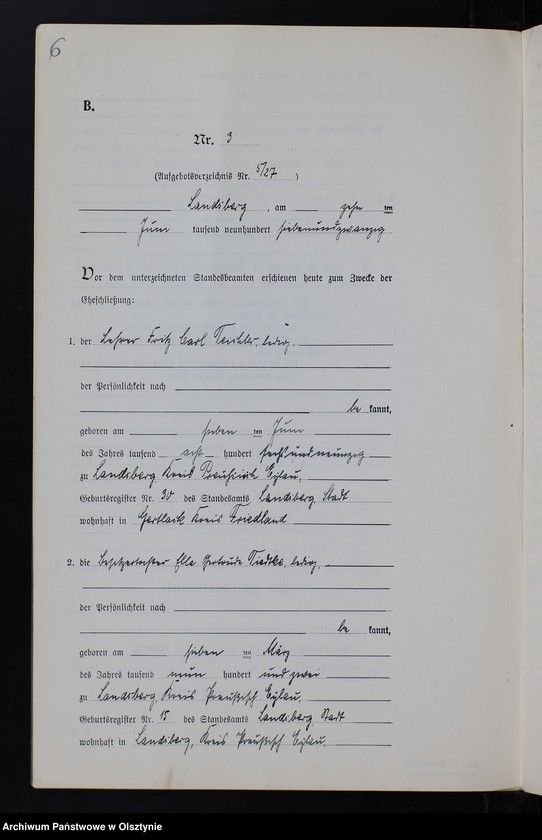 6
B.
Nr. 3
(Aufgebotsverzeichnis Nr. 5/27 )
Landsberg, am zehn ten
Juni tausend neunhundert siebenundzwanzig
Vor dem unterzeichneten Standesbeamten erschienen heute zum Zwecke der
Eheschließung:
1. der Lehrer Fritz Carl ledig,
der Persönlichkeit nach
be kannt,
geboren am sieben ten Juni
des Jahres tausend acht hundert sechsundneunzig
zu Landsberg, Kreis Preußisch Eylau,
Geburtsregister Nr. 30 des Standesamts Landsberg Stadt
wohnhaft in Gertlack Kreis Friedland
2. die Besitzertochter Ella Gertrude Tiedtke, ledig,
der Persönlichkeit nach
be kannt,
geboren am sieben ten März
des Jahres tausend neun hundert und zwei
zu Landsberg, Kreis Preußisch Eylau,
Geburtsregister Nr. 15 des Standesamts Landsberg Stadt
wohnhaft in Landsberg, Kreis Preußisch Eylau.
Archiwum Państwowe w Olsztynie